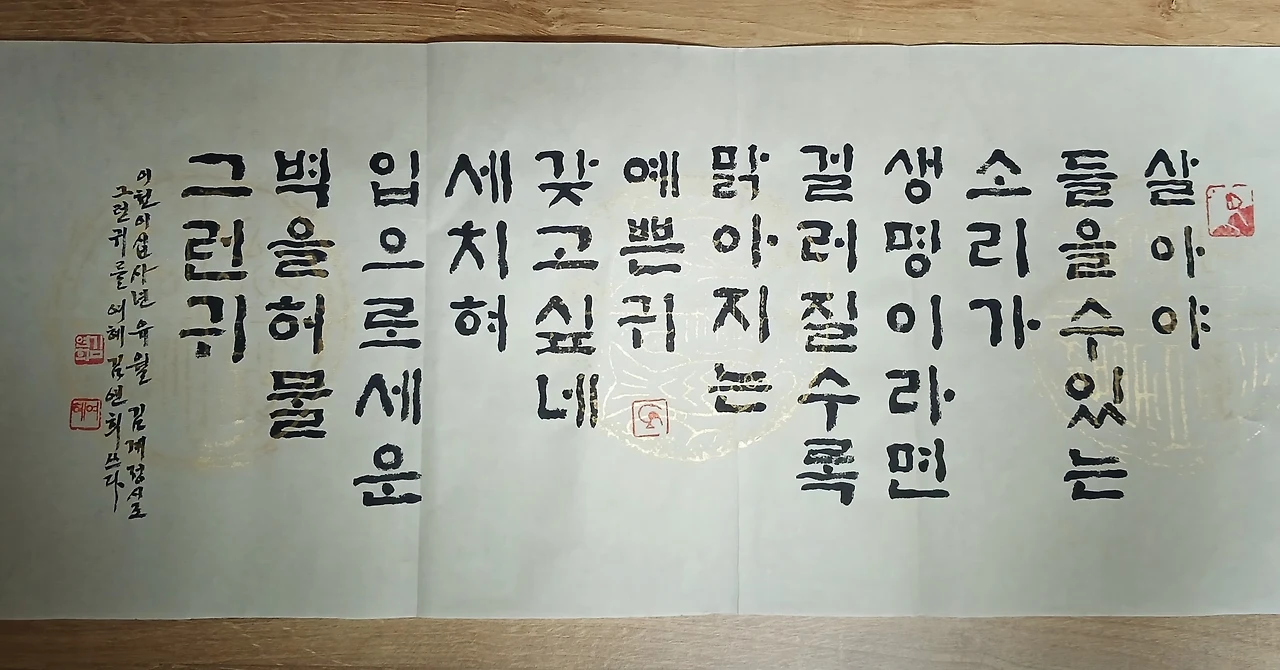 살아야
들을수있는
소리가
생명이라면
걸러질수록
맑아지는
예쁜귀
갖고싶네
세치혀
입으로세운
벽을허물
그런귀
이천이십사년 유월 김계정시조
그런귀를 여혜 김연희쓰다